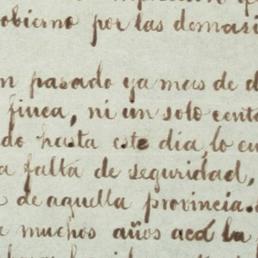 obierno por las demas
n pasado ya mas de d
finca, ni un solo cent
do hasta este dia, lo cu
a falta de seguridad,
de aquella provincia.
muchos años acá la